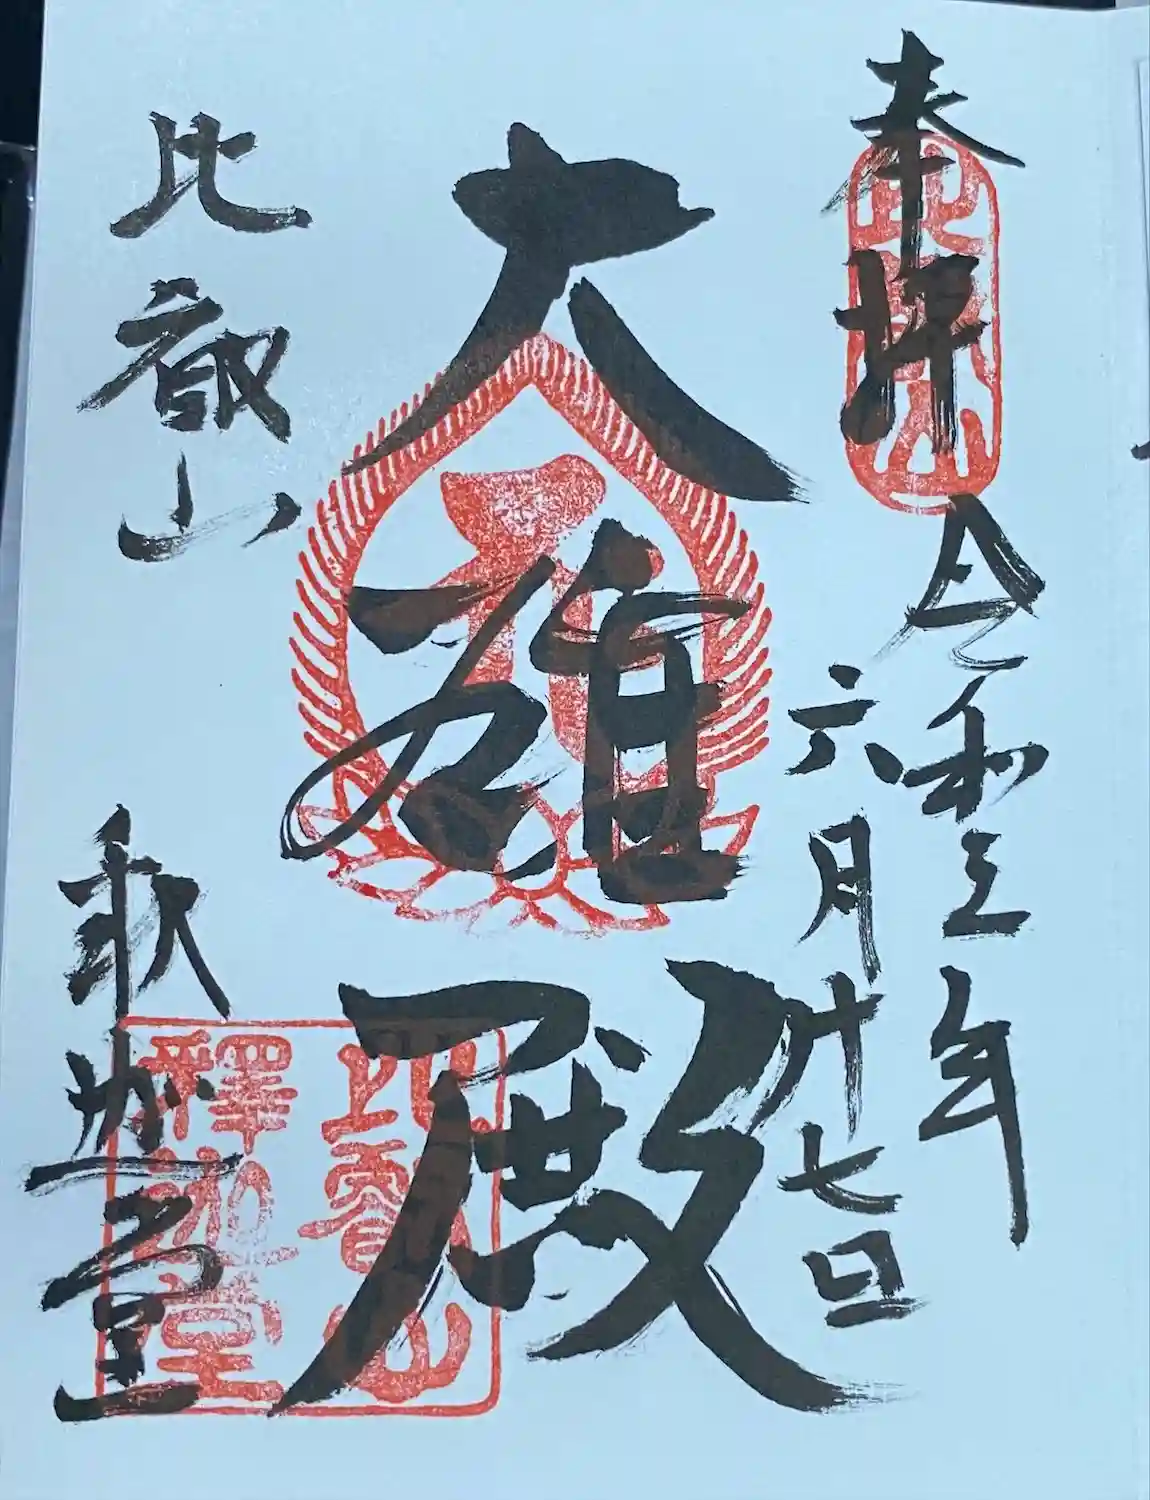 奉拝
比叡山
令和五年
六月廿七日
大雄殿
比叡山
釈迦堂
比叡山
釋迦堂